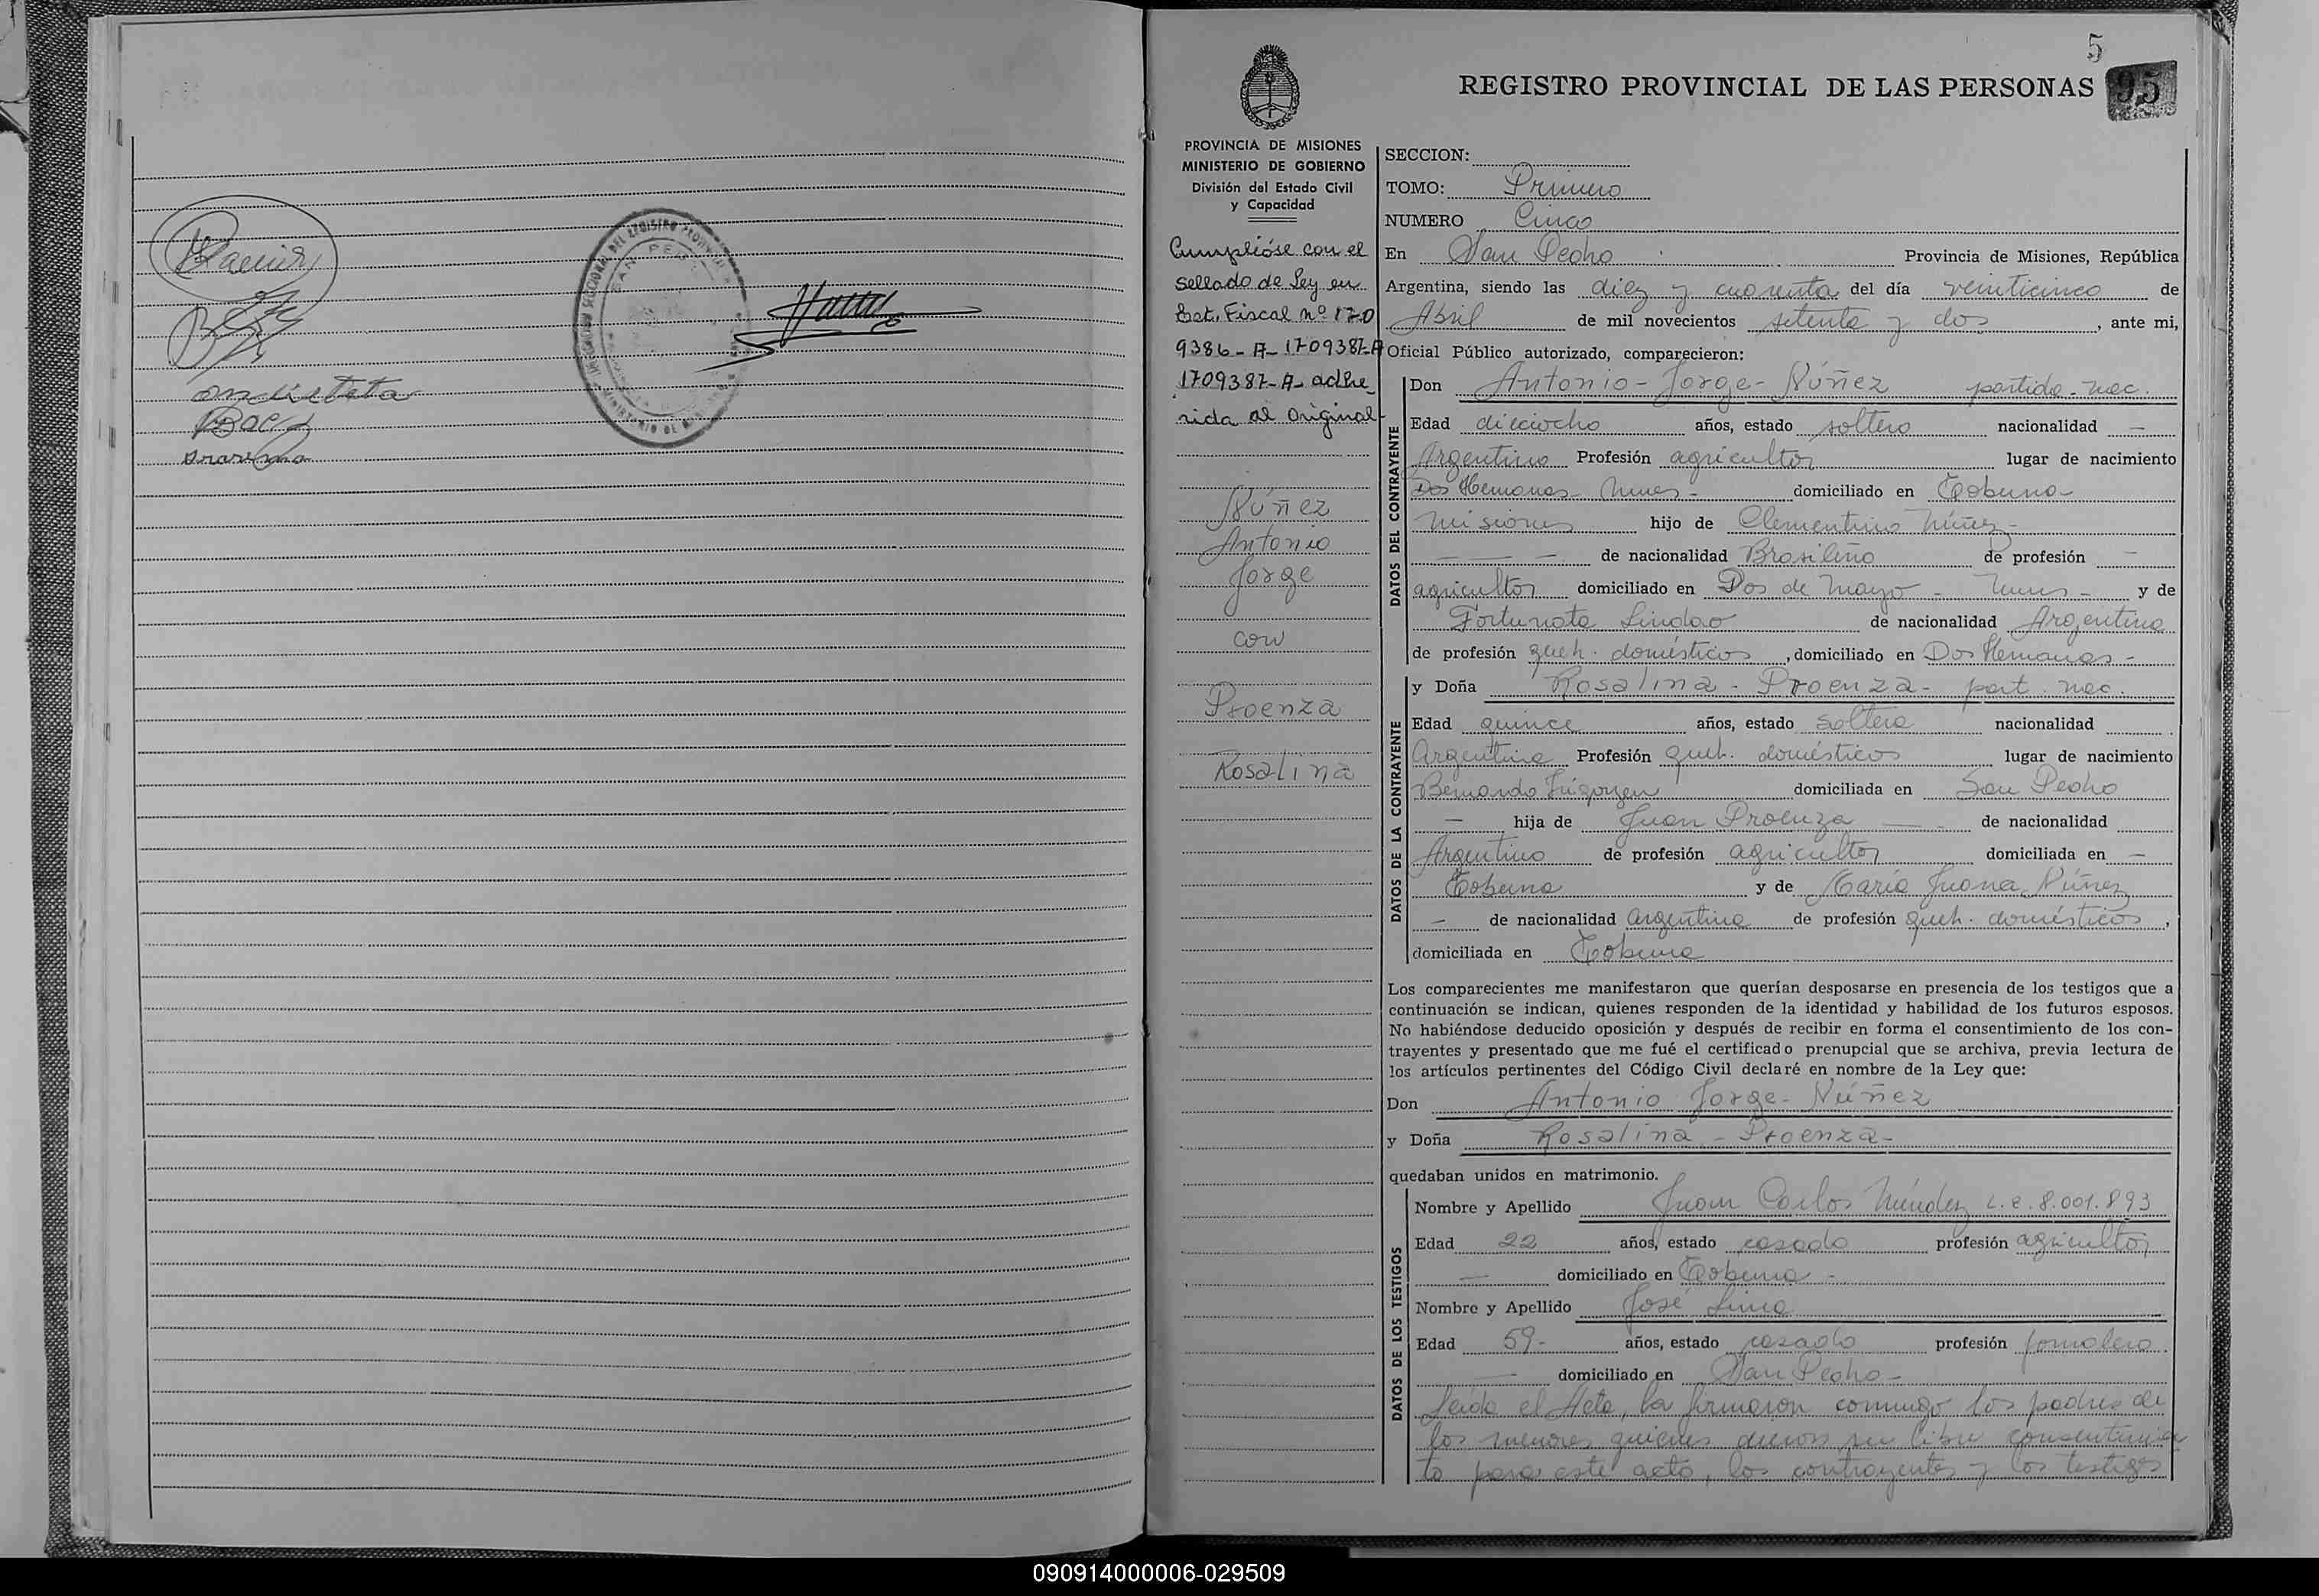 5
REGISTRO PROVINCIAL DE LAS PERSONAS 95
PROVINCIA DE MISIONES
MINISTERIO DE GOBIERNO
División del Estado Civil
y Capacidad
Cumplióse con el
sellado de Ley en
Est. Fiscal nº 170
9386-A-1709387-A
1709387-A- adhe
rida al Original-
Núñez
Antonio
Jorge
con
Proenza
Rosalina
SECCION:
TOMO: Primero
NUMERO Cinco
En San Pedro Provincia de Misiones, República
Argentina, siendo las diez y cuarenta del día veinticinco de
Abril de mil novecientos setenta y dos, ante mi,
Oficial Público autorizado, comparecieron:
DATOS DEL CONTRAYENTE
Don Antonio-Jorge-Núñez partida-nac.
Edad dieciocho años, estado soltero nacionalidad —
Argentino Profesión agricultor lugar de nacimiento
Dos Hermanas- Mnes- domiciliado en Tobuna-
Misiones hijo de Clementino Núñez-
— — — de nacionalidad Brasileño de profesión —
agricultor domiciliado en Dos de Mayo - Mnes- y de
Fortunata Lindao de nacionalidad Argentina
de profesión queh. domésticos, domiciliado en Dos Hermanas-
DATOS DE LA CONTRAYENTE
y Doña Rosalina-Proenza- part. nac.
Edad quince años, estado soltera nacionalidad
Argentina Profesión queh. domésticos lugar de nacimiento
Bernardo Irigoyen domiciliada en San Pedro
— hija de Juan Proenza — de nacionalidad
Argentino de profesión agricultor domiciliada en —
Tobuna y de María Juana Núñez
— de nacionalidad argentina de profesión queh. domésticos,
domiciliada en Tobuna
Los comparecientes me manifestaron que querían desposarse en presencia de los testigos que a
continuación se indican, quienes responden de la identidad y habilidad de los futuros esposos.
No habiéndose deducido oposición y después de recibir en forma el consentimiento de los con-
trayentes y presentado que me fué el certificado prenupcial que se archiva, previa lectura de
los artículos pertinentes del Código Civil declaré en nombre de la Ley que:
Don Antonio Jorge-Núñez
y Doña Rosalina-Proenza-
quedaban unidos en matrimonio.
DATOS DE LOS TESTIGOS
Nombre y Apellido Juan Carlos Méndez L.E. 8.001.893
Edad 22 años, estado casado profesión agricultor
— domiciliado en Tobuna -
Nombre y Apellido José Lima
Edad 59- años, estado casado profesión jornalero
— domiciliado en San Pedro-
Leída el Acta, la firmaron conmigo los padres de
los menores quienes dieron su libre consentimien
to para este acto, los contrayentes y los testigos
090914000006-029509